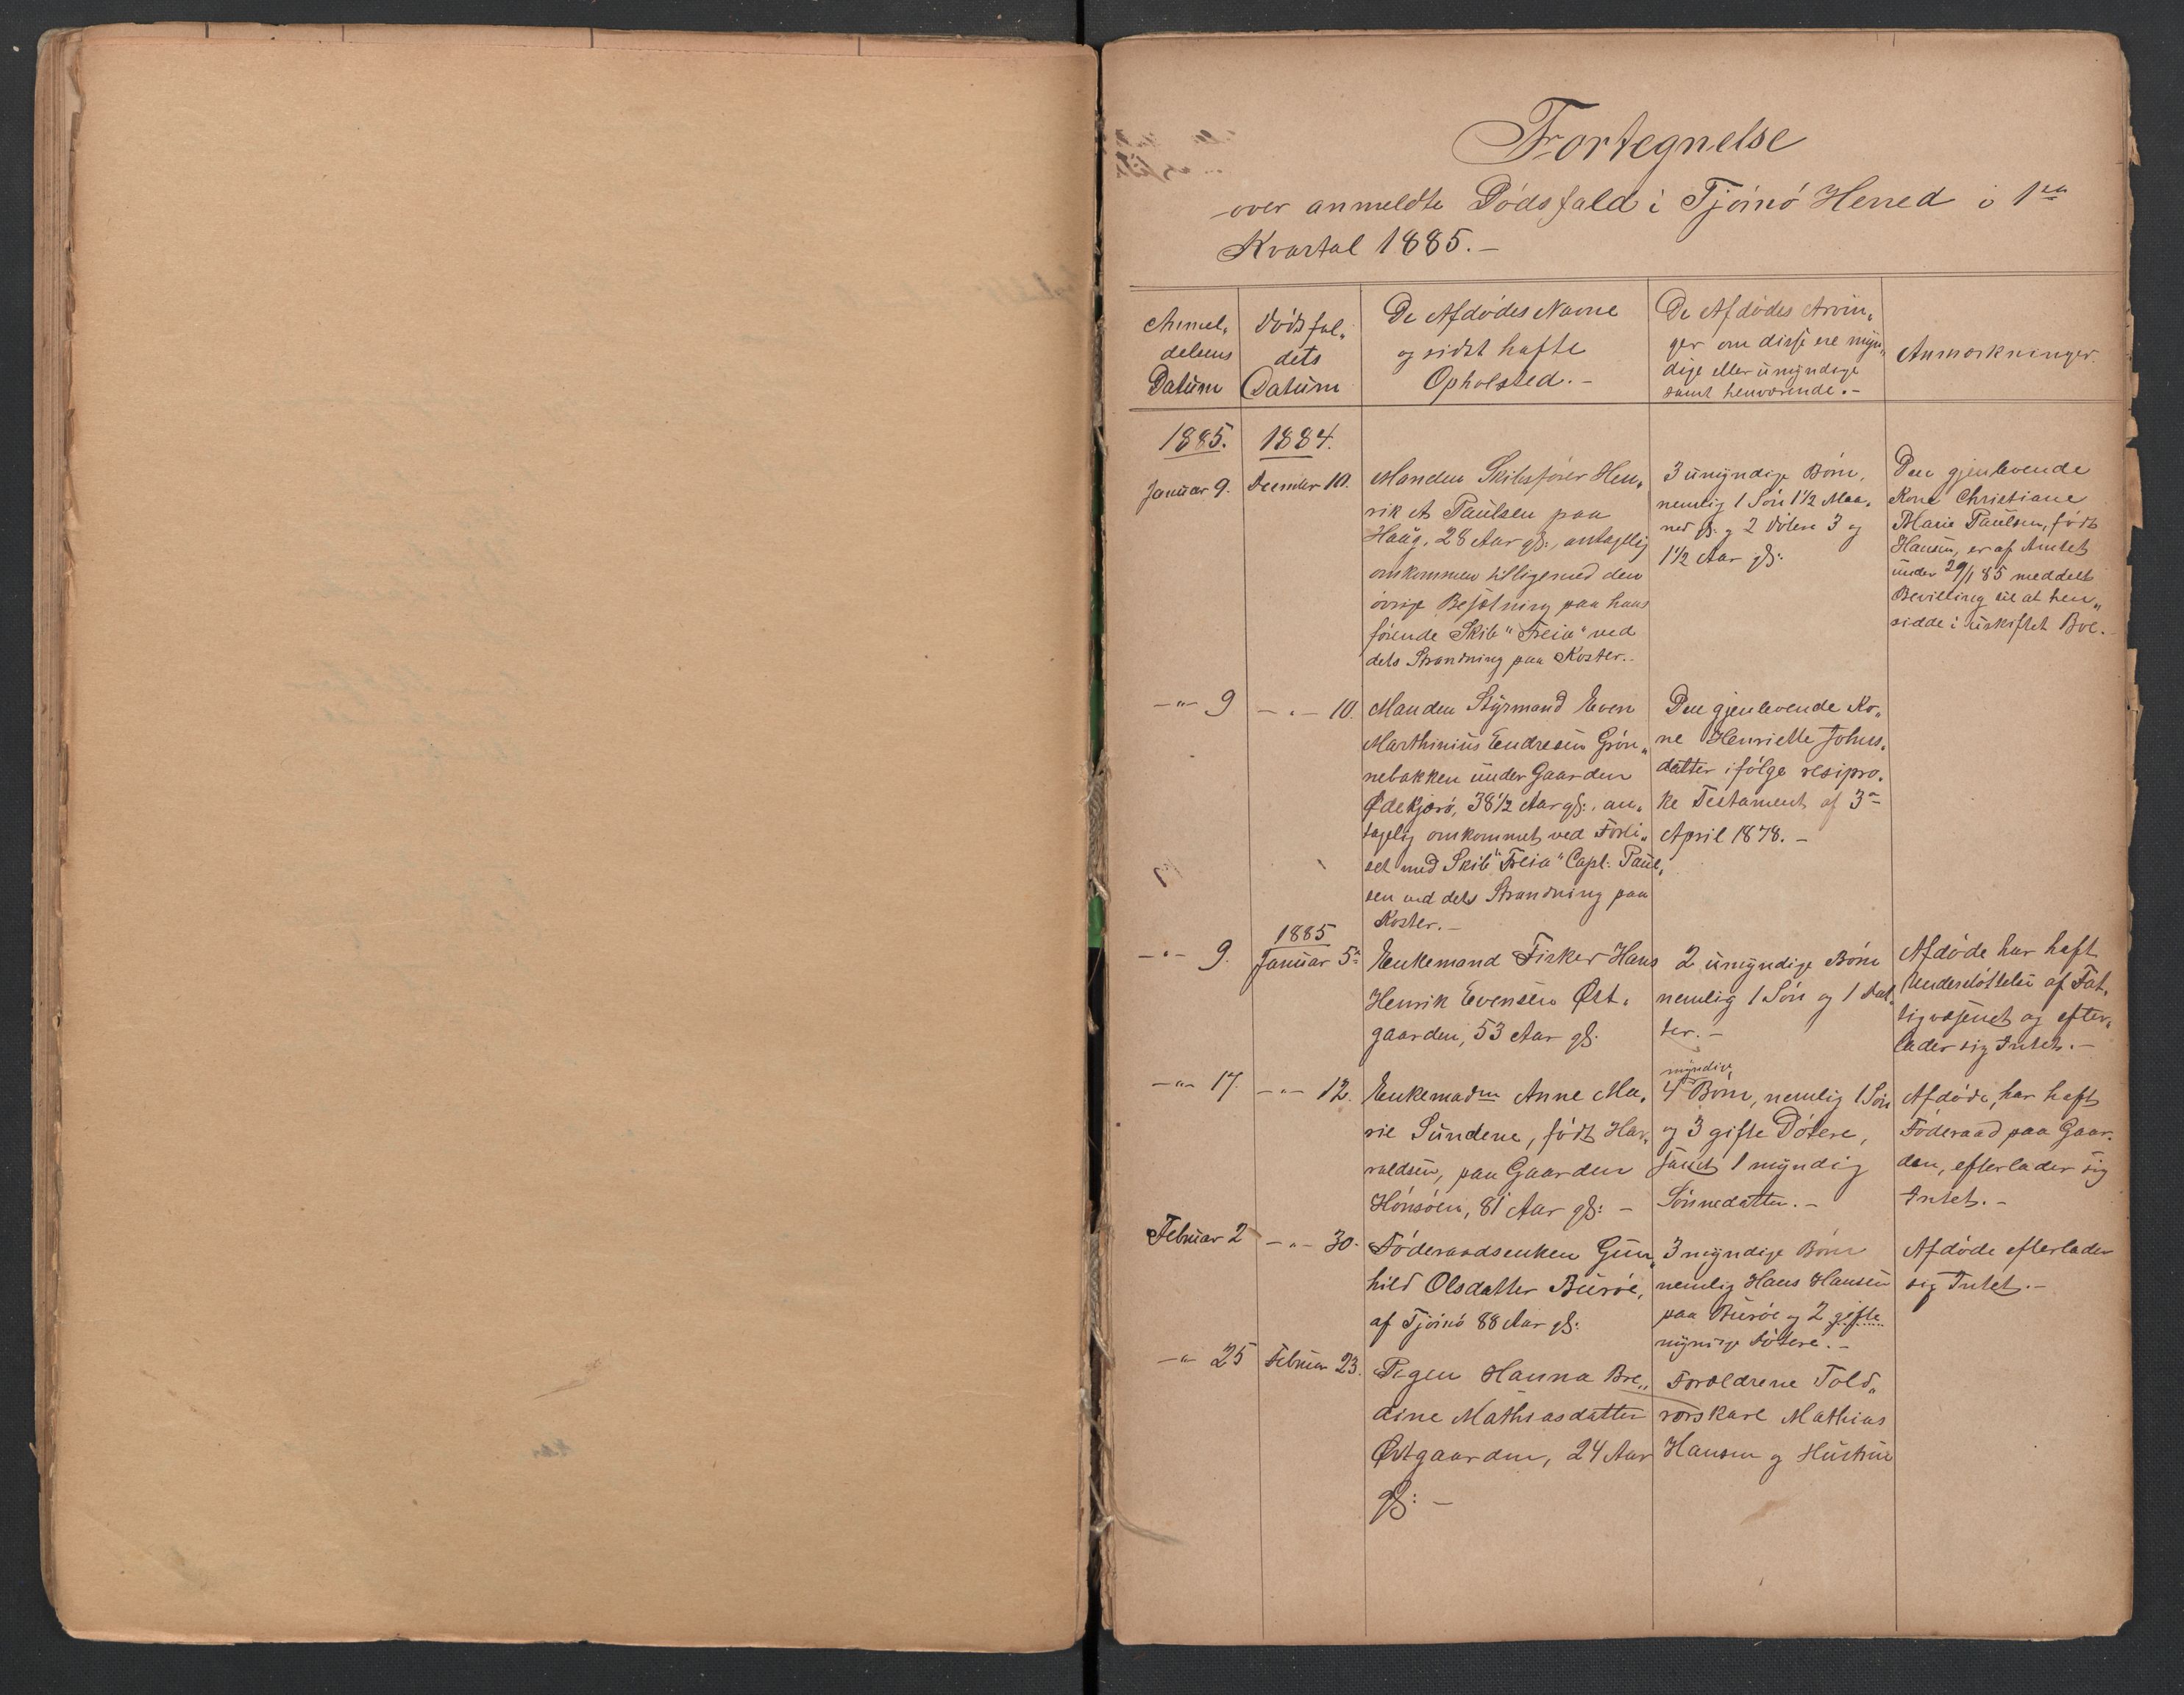 Fortegnelse
over anmeldte Dødsfald i Tjømø Herred i 1ste
Kvartal 1885.-
Anmel„
delsens
Datum
Dødsfal„
dets
Datum
De Afdødes Navne
og sidst hafte
Opholsted.-
De Afdødes Arvin„
ger om disse ere myn„
dige eller umyndige
samt henværende.-
Anmærkninger.
1885.
1884.
Januar 9.
Decembr 10.
Manden Skibsfører Hen„
rik A Paulsen paa
Haug, 28 Aar gl:, antagelig
omkommen tilligemed den
øvrige Besætning paa hans
førende Skib "Freia" ved
dets Strandning paa Koster.-
3 umyndige Børn,
nemlig 1 Søn 1½ Maa„
ned gl. og 2 Døtre 3 og
1½ Aar gl:
Den gjenlevende
Kone Christiane
Marie Paulsen, født
Hansen, er af Amtet
under 29/1 85 meddelt
Bevilling til at hen„
sidde i uskiftet Boe.-
-"- 9
-"- 10.
Manden Styrmand Even
Marthinius Endresen Grøn„
nebakken under Gaarden
Ødekjærø, 38½ Aar gl:, an„
tagelig omkommet ved Forli„
set med Skib "Freia" Capt. Paul„
sen ved dets Strandning paa
Koster.-
Den gjenlevende Ko„
ne Henriette Johns„
datter ifølge resipro„
ke Testament af 3die
April 1878.-
-"- 9.
1885
Januar 5te
Enkemand Fisker Hans
Henrik Evensen Øst„
gaarden, 53 Aar gl.
2 umyndige Børn
nemlig 1 Søn og 1 Dat„
ter.-
Afdøde har haft
Understøttelse af Fat„
tigvæsenet og efter„
lader sig Intet.-
-"- 17.
-"- 12.
Enkemadm Anne Ma„
rie Sundene, født Har„
raldsen, paa Gaarden
Hønsøen, 81 Aar gl: -
myndige
4 Børn, nemlig 1 Søn
og 3 gifte Døtere,
samt 1 myndig
Sønnedatter.-
Afdøde, har haft
Føderaad paa Gaar„
den, efterlader sig
Intet.-
Februar 2
-"- 30.
Føderaadsenken Gun„
hild Olsdatter Burøe,
af Tjømø 88 Aar gl:
3 myndige Børn
nemlig Hans Hansen
paa Burøe og 2 gifte
myndige Døtere.-
Afdøde efterlader
sig Intet.-
-"- 25
Februar 23.
Pigen Hanna Bre„
dine Mathiasdatter
Østgaarden, 24 Aar
gl: -
Forældrene Told„
rorskarl Mathias
Hansen og Hustru